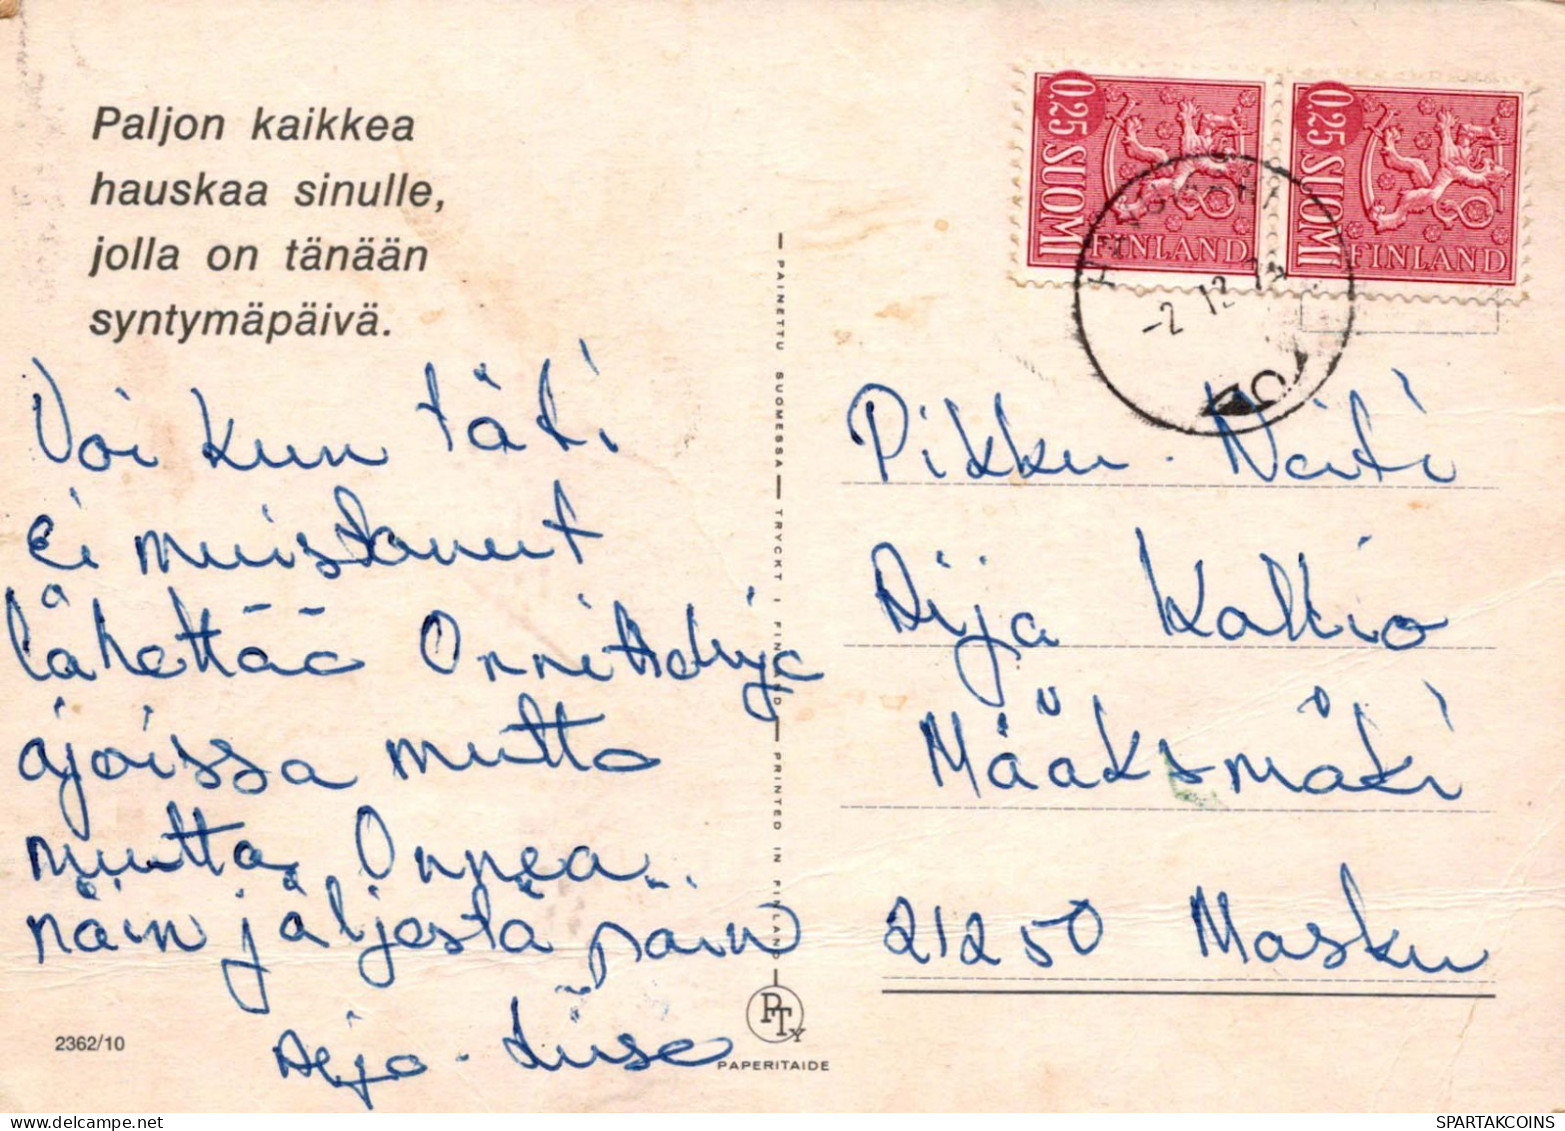 Paljon kaikkea
hauskaa sinulle,
jolla on tänään
syntymäpäivä.
Voi kun täti
ei muistanut
lähettää Onnitteluja
ajoissa mutta
mutta Onnea
näin jäljestä päin
2362/10
PAINETTU SUOMESSA — TRYCKT I FINLAND — PRINTED IN FINLAND
PTy
PAPERITAIDE
0.25 SUOMI
FINLAND
0.25 SUOMI
FINLAND
-2.12.75
Pikku-Neiti
Aija Kallio
Määksmäki
21250 Masku
SPARTAKCOINS